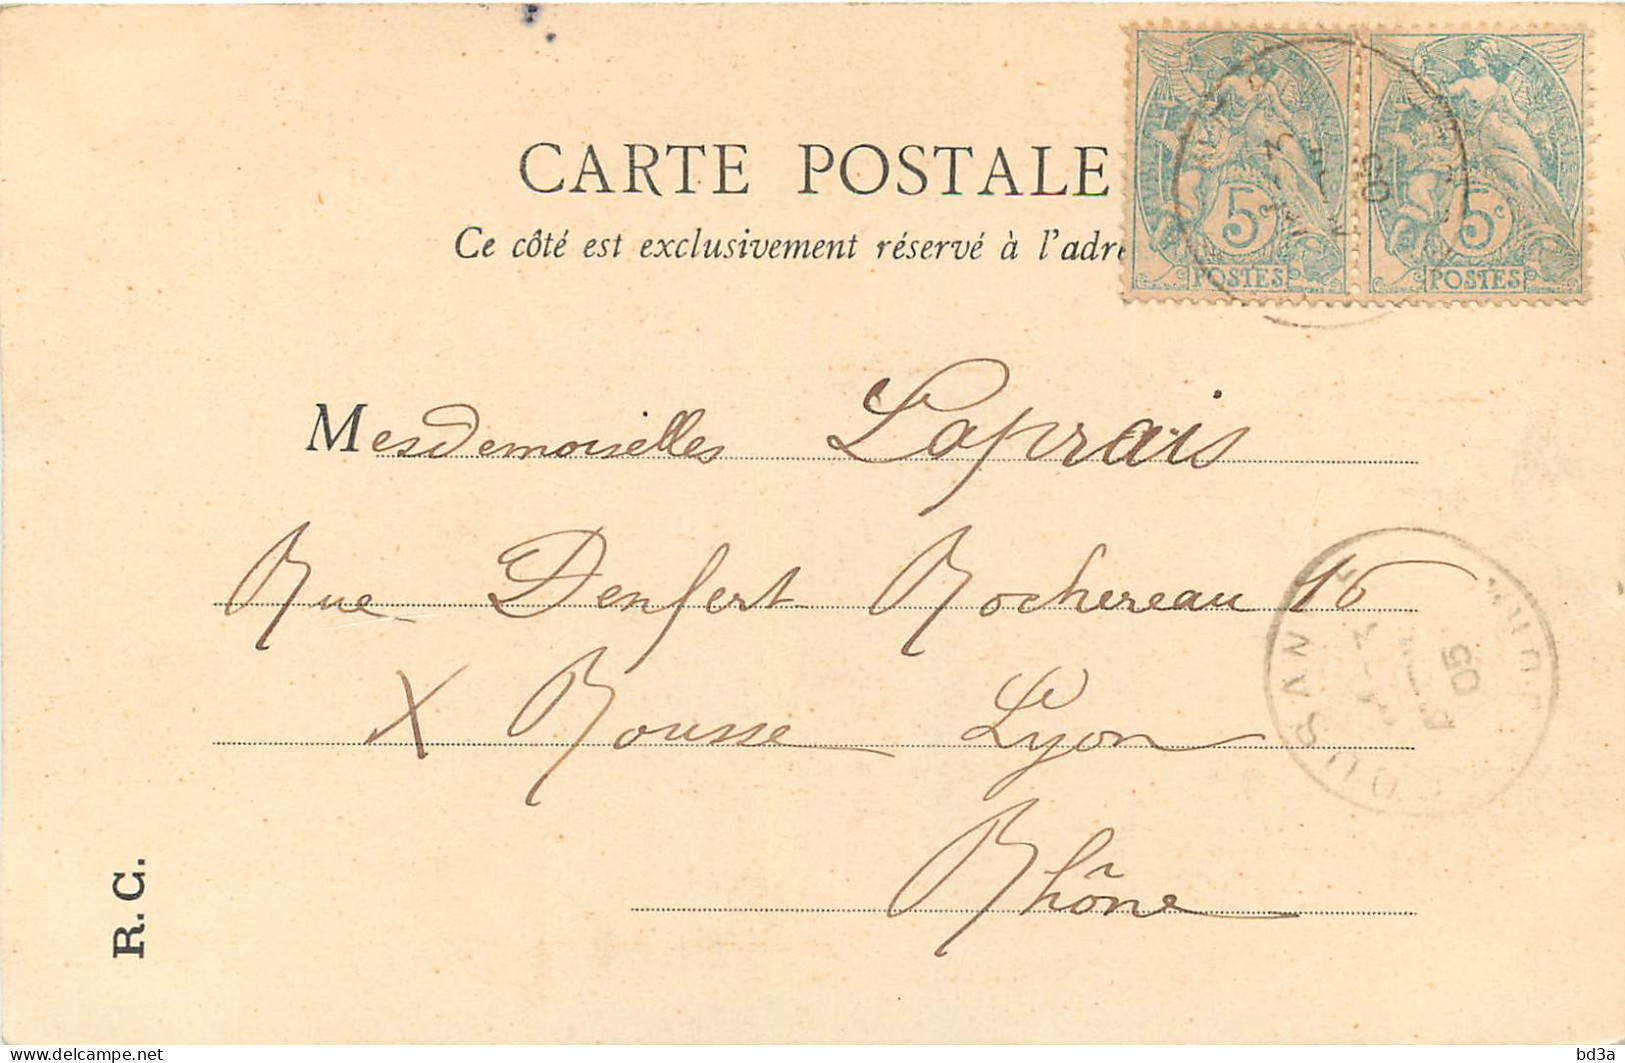 CARTE POSTALE
Ce côté est exclusivement réservé à l'adre
5c 5c
POSTES POSTES
Mesdemoiselles Laprais
Rue Denfert Rochereau 16
X Rousse Lyon
Rhône
05
05
R. C.
delcampe.net
bd3a